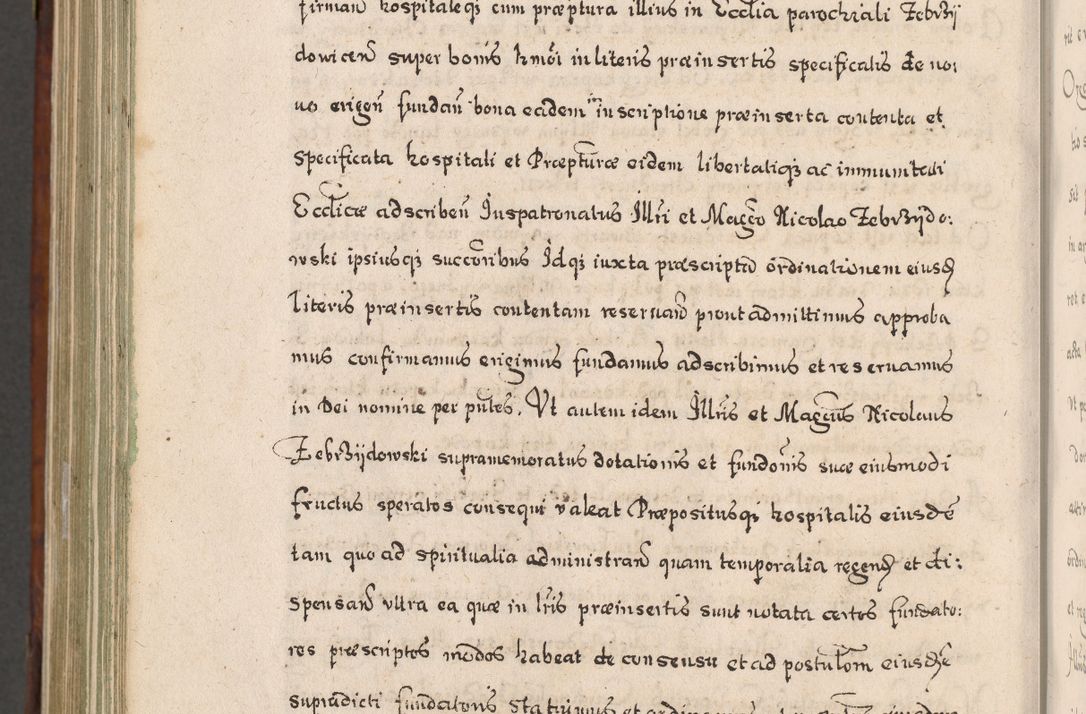 firman̄ hospitaleq; cum præptura illius in Ecclia parochiali Zebrzÿ
dowicen̄ super bonis hmoi in literis præinsertis specificatis de no:
uo erigen̄ fundan̄ bona eadem in inscriptione præinserta contenta et
specificata hospitali et Præpturæ eidem libertatiq; ac immunitati
Eccliæ adscriben̄ Iuspatronatus Illri et Magco Nicolao Zebrzÿdo:
wski ipsiusq; succoribus Idq; iuxta præscriptā ordinationem eiusd
literis præinsertis contentam reseruan̄ prout admittimus approba
mus confirmamus erigimus fundamus adscribimus et reseruamus
in Dei nomine per pntes. Vt autem idem Illris et Magcus Nicolaus
Zebrzÿdowski supramemoratus dotationis et fundonis suæ eiusmodi
fructus speratos consequi valeat Præpositusq; hospitalis eiusdē
tam quo ad spiritualia administran̄ quam temporalia regend et di:
spensan̄ vltra ea quæ in lris præinsertis sunt notata certos fundato:
res præscriptos modos habeat de consensu et ad postulaom eiusdē
supradicti fundatoris statuimus et